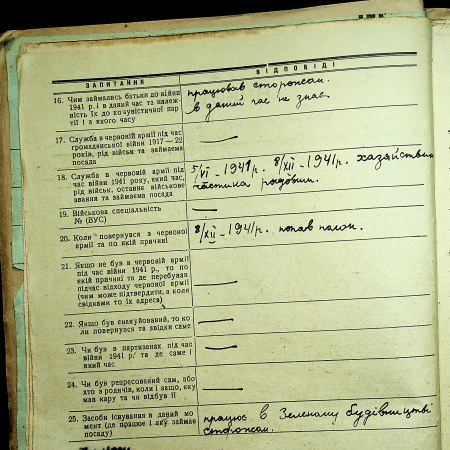 ЗАПИТАННЯ
ВІДПОВІДІ
16. Чим займались батьки до війни
1941 р. і в даний час та належ-
ність їх до комуністичної пар
тії і з якого часу
працював сторожем.
в даний час не знає.
17. Служба в червоній армії під час
громадянської війни 1917—22
років, рід військ та займаема
посада
—
18. Служба в червоній армії під
час війни 1941 року, який час,
рід військ, останнє військове
звання та займаема посада
5/VI - 1941 р. 8/XII - 1941 р. хазяйствен
частина рядовим.
19. Військова спеціальність
№ (ВУС)
—
20. Коли повернувся в червоної
армії та по якій причині
8/XII - 1941 р. попав полон.
21. Якщо не був в червоній армії
під час війни 1941 р., то по
якій причині та де перебував
підчас відходу червоної армії
(чим може підтвердити, а коли
свідками то їх адреса)
—
22. Якщо був евакуйований, то ко
ли повернувся та звідки саме
—
23. Чи був в партизанах під час
війни 1941 р. та де саме і
який час
—
24. Чи був репресований сам, або
хто з родичів, коли і защо, яку
мав кару та чи відбув її
—
25. Засоби існування в даний мо
мент (де працює і яку займає
посаду)
працює в Зеленому будівництві
сторожем.